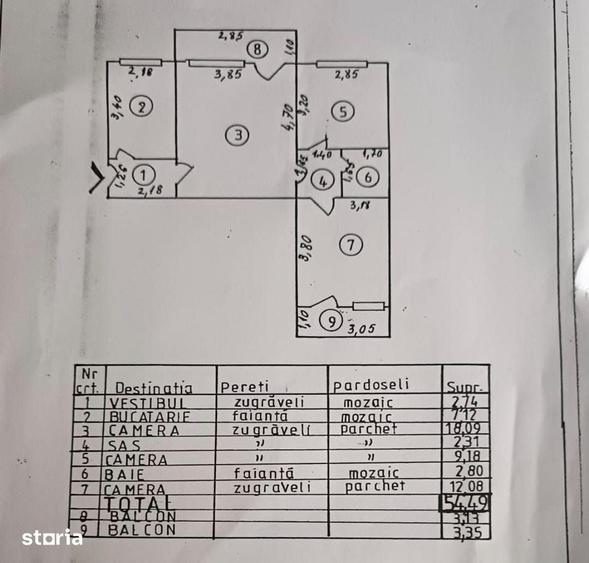 2,85
8
1,10
2,18
3,85
2,85
3,40
2
3
4,70
3,20
5
1,26
1
2,18
1,65
1,40
4
1,65
1,70
6
3,18
3,80
7
1,10
9
3,05
Nr crt. Destinatia Pereti pardoseli Supr.
1 VESTIBUL zugrăveli mozaic 2,74
2 BUCATARIE faiantă mozaic 7,12
3 CAMERA zugrăveli parchet 18,09
4 SAS " " 2,31
5 CAMERA " " 9,18
6 BAIE faiantă mozaic 2,80
7 CAMERA zugraveli parchet 12,08
TOTAL 54,49
8 BALCON 3,13
9 BALCON 3,35
storia